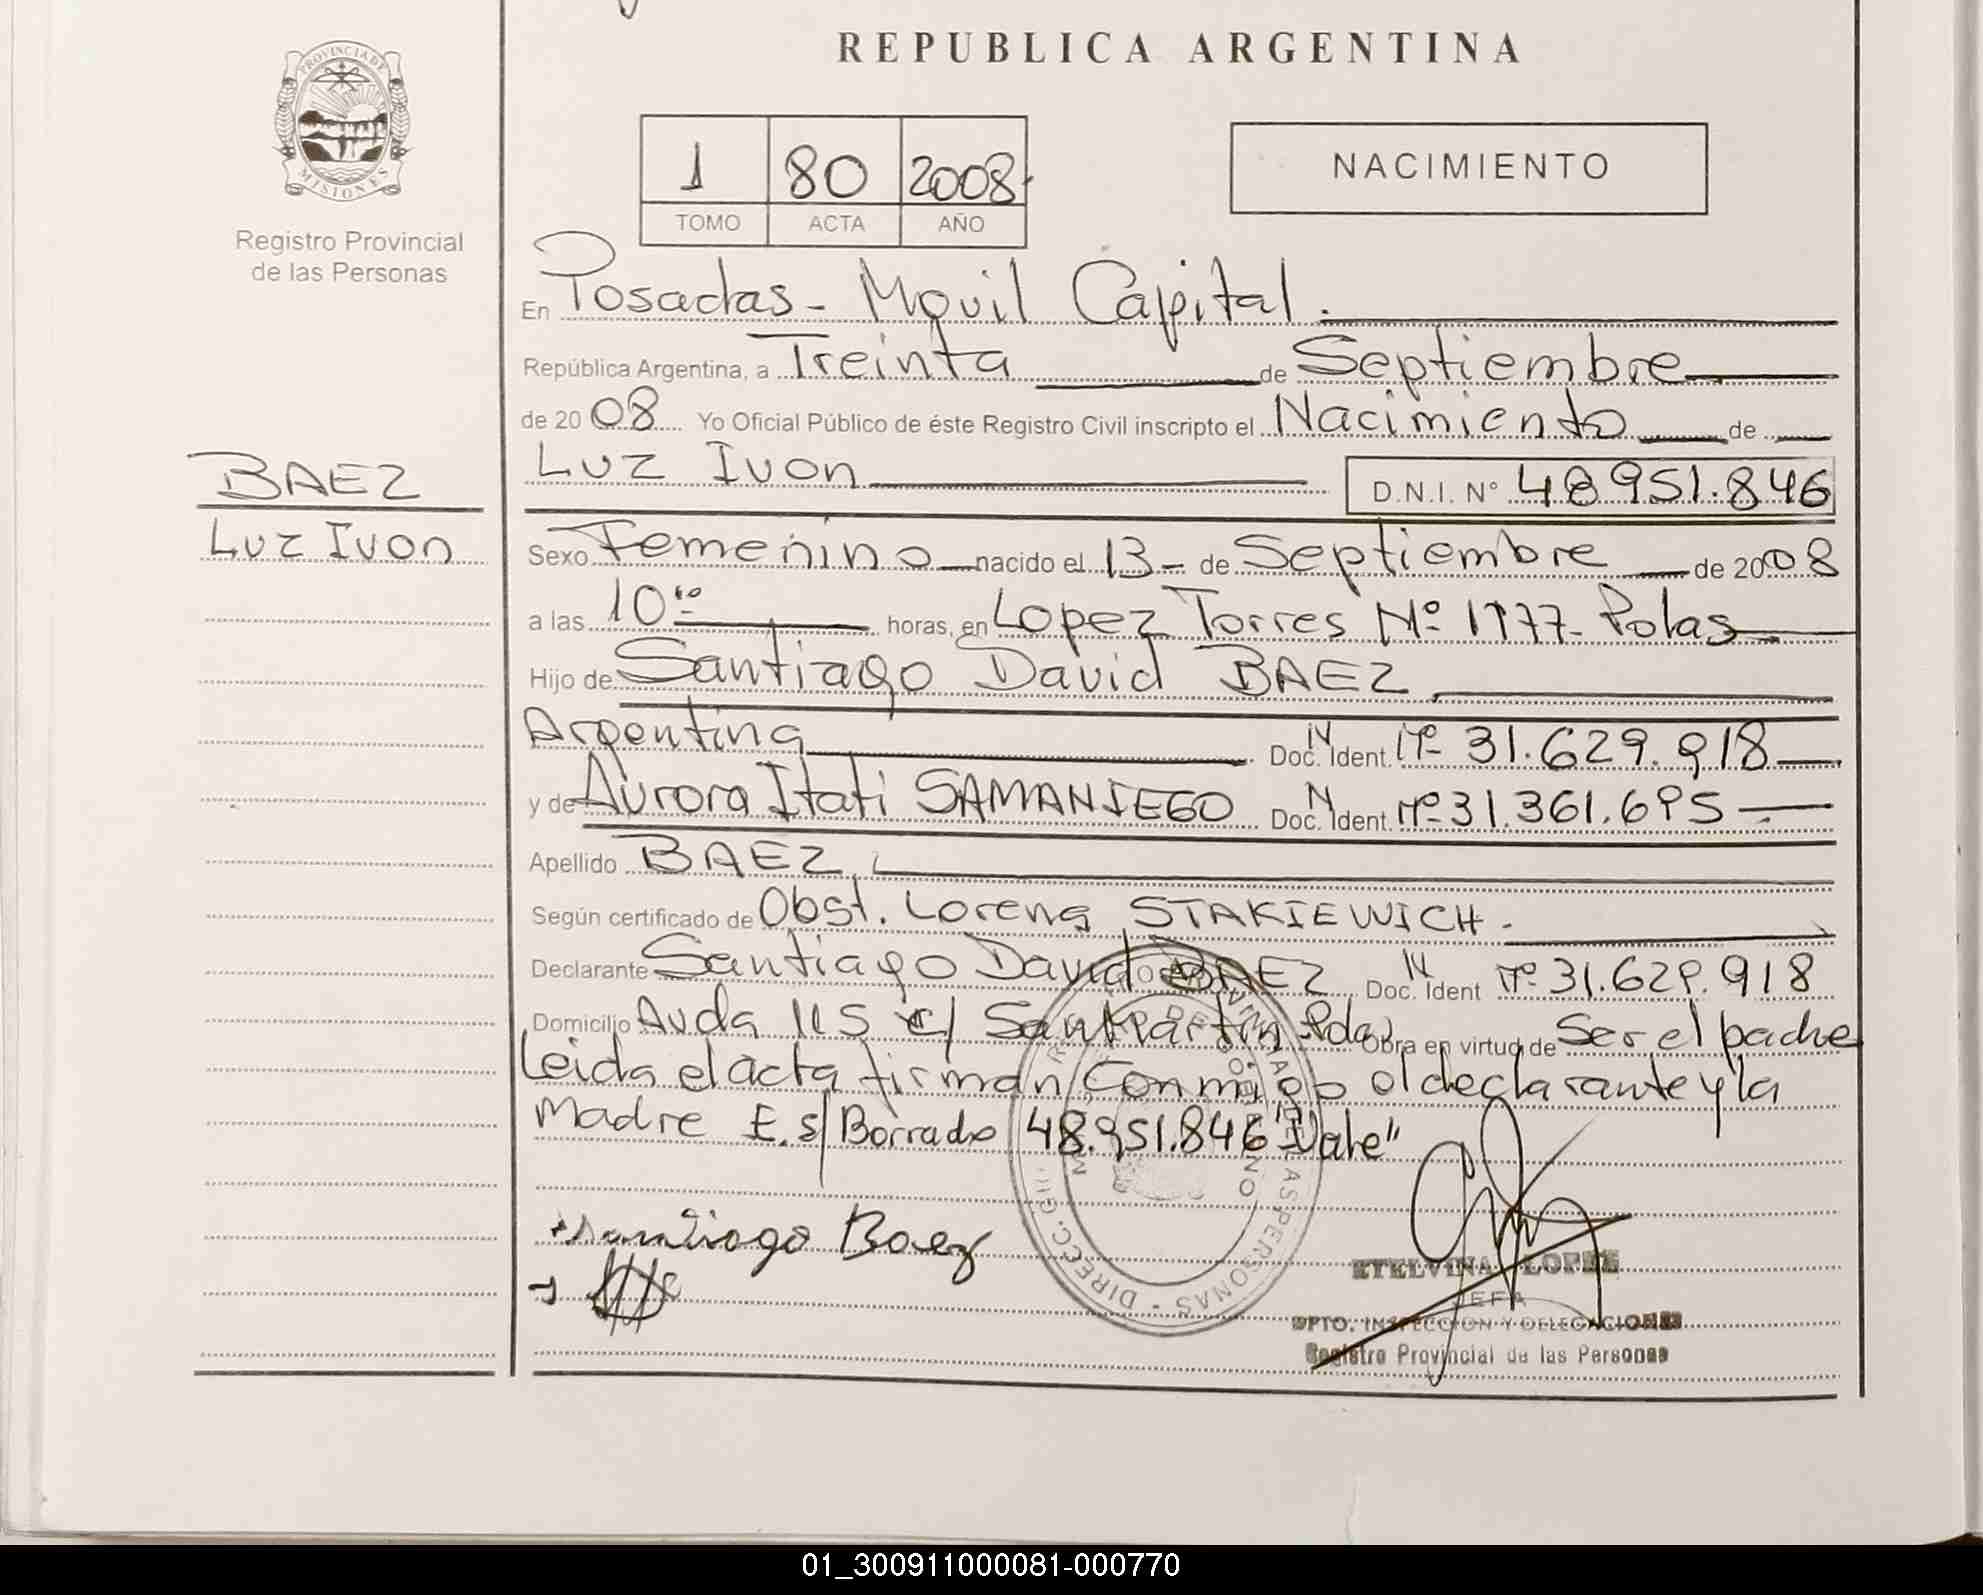 REPUBLICA ARGENTINA
PROVINCIA DE
MISIONES
Registro Provincial
de las Personas
1 80 2008
TOMO ACTA AÑO
NACIMIENTO
En Posadas - Movil Capital.
República Argentina, a Treinta de Septiembre
de 2008 Yo Oficial Público de éste Registro Civil inscripto el Nacimiento de
Luz Ivon D.N.I. Nº 48951.846
BAEZ
Luz Ivon
Sexo Femenino nacido el 13- de Septiembre de 2008
a las 10 horas, en Lopez Torres Nº 1977- Polas
Hijo de Santiago David BAEZ
Argentina Doc. N Ident. Nº 31.629.918
y de Aurora Itati SAMANIEGO Doc. N Ident. Nº 31.361.695
Apellido BAEZ
Según certificado de Obst. Lorena STAKIEWICH.
Declarante Santiago David BAEZ Doc. N Ident Nº 31.629.918
Domicilio Avda 115 c/ San Martin Pdas Obra en virtud de Ser el padre
Leida el acta firman Conmigo el declarante y la
Madre E. s/ Borrado 48.951.846 "Vale"
Santiago Baez
ETELVINA LOPEZ
JEFA
DPTO. INSPECCION Y DELEGACIONES
Registro Provincial de las Personas
01_300911000081-000770